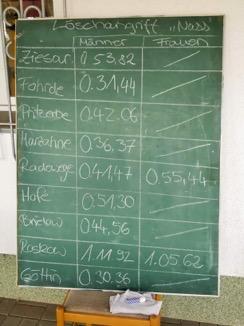 Löschangriff „Nass
Männer Frauen
Ziesar 0.53,82
Fohrde 0.31,44
Pritzerbe 0.42.06
Marzahne 0.36,37
Radewege 0.41,47 0.55,44
Hofe 0.51,30
Brielow 0.44,56
Roskow 1.11 92 1.05 62
Göttin 0.30.36